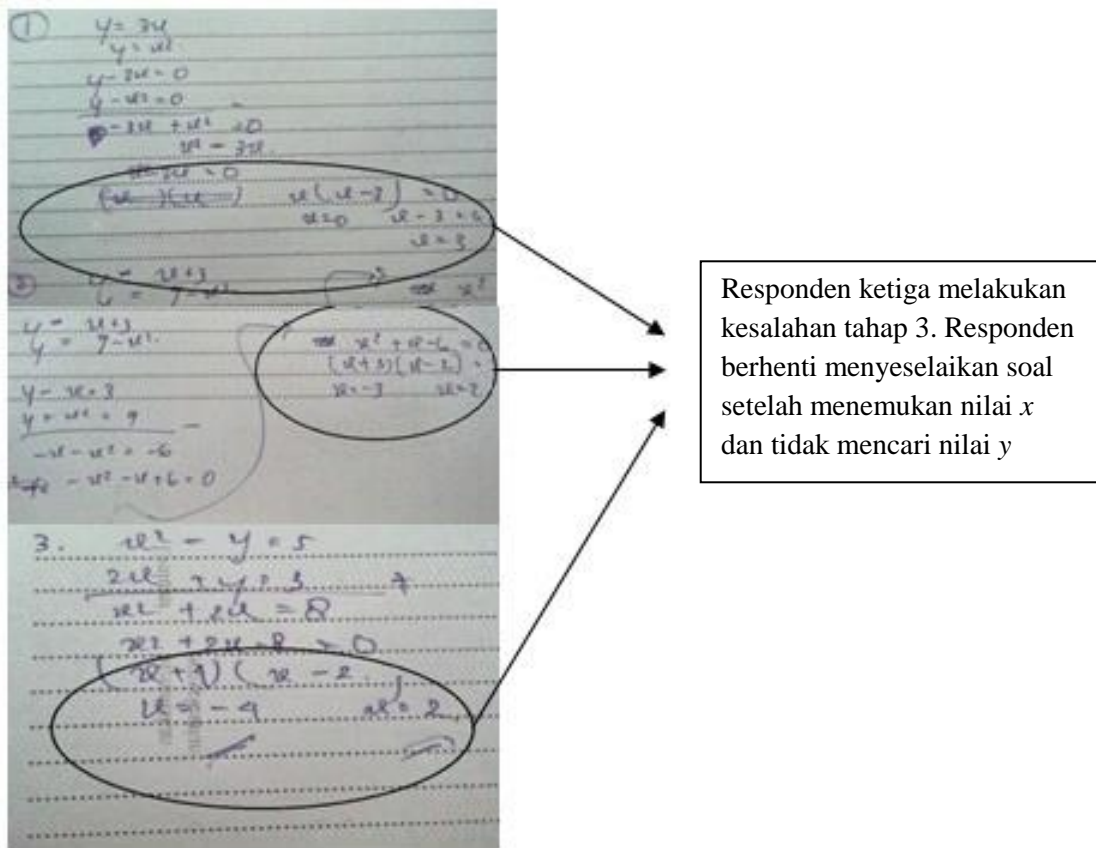 1
y = 3x
y = x²
y - 3x = 0
y - x² = 0
-3x + x² = 0
x² - 3x
= 0
x(x-3) = 0
x=0 x - 3 = 0
x = 3
2
y = x+3
y = 9-x²
x²
y = x+3
y = 9-x²
x² + x - 6 = 0
(x+3)(x-2) =
x=-3 x=2
y - x = 3
y + x² = 9
-x - x² = -6
-x² - x + 6 = 0
3. x² - y = 5
2x + y = 3 +
x² + 2x = 8
x² + 2x - 8 = 0
(x + 4)(x - 2)
x = -4 x = 2
Responden ketiga melakukan
kesalahan tahap 3. Responden
berhenti menyeselaikan soal
setelah menemukan nilai x
dan tidak mencari nilai y